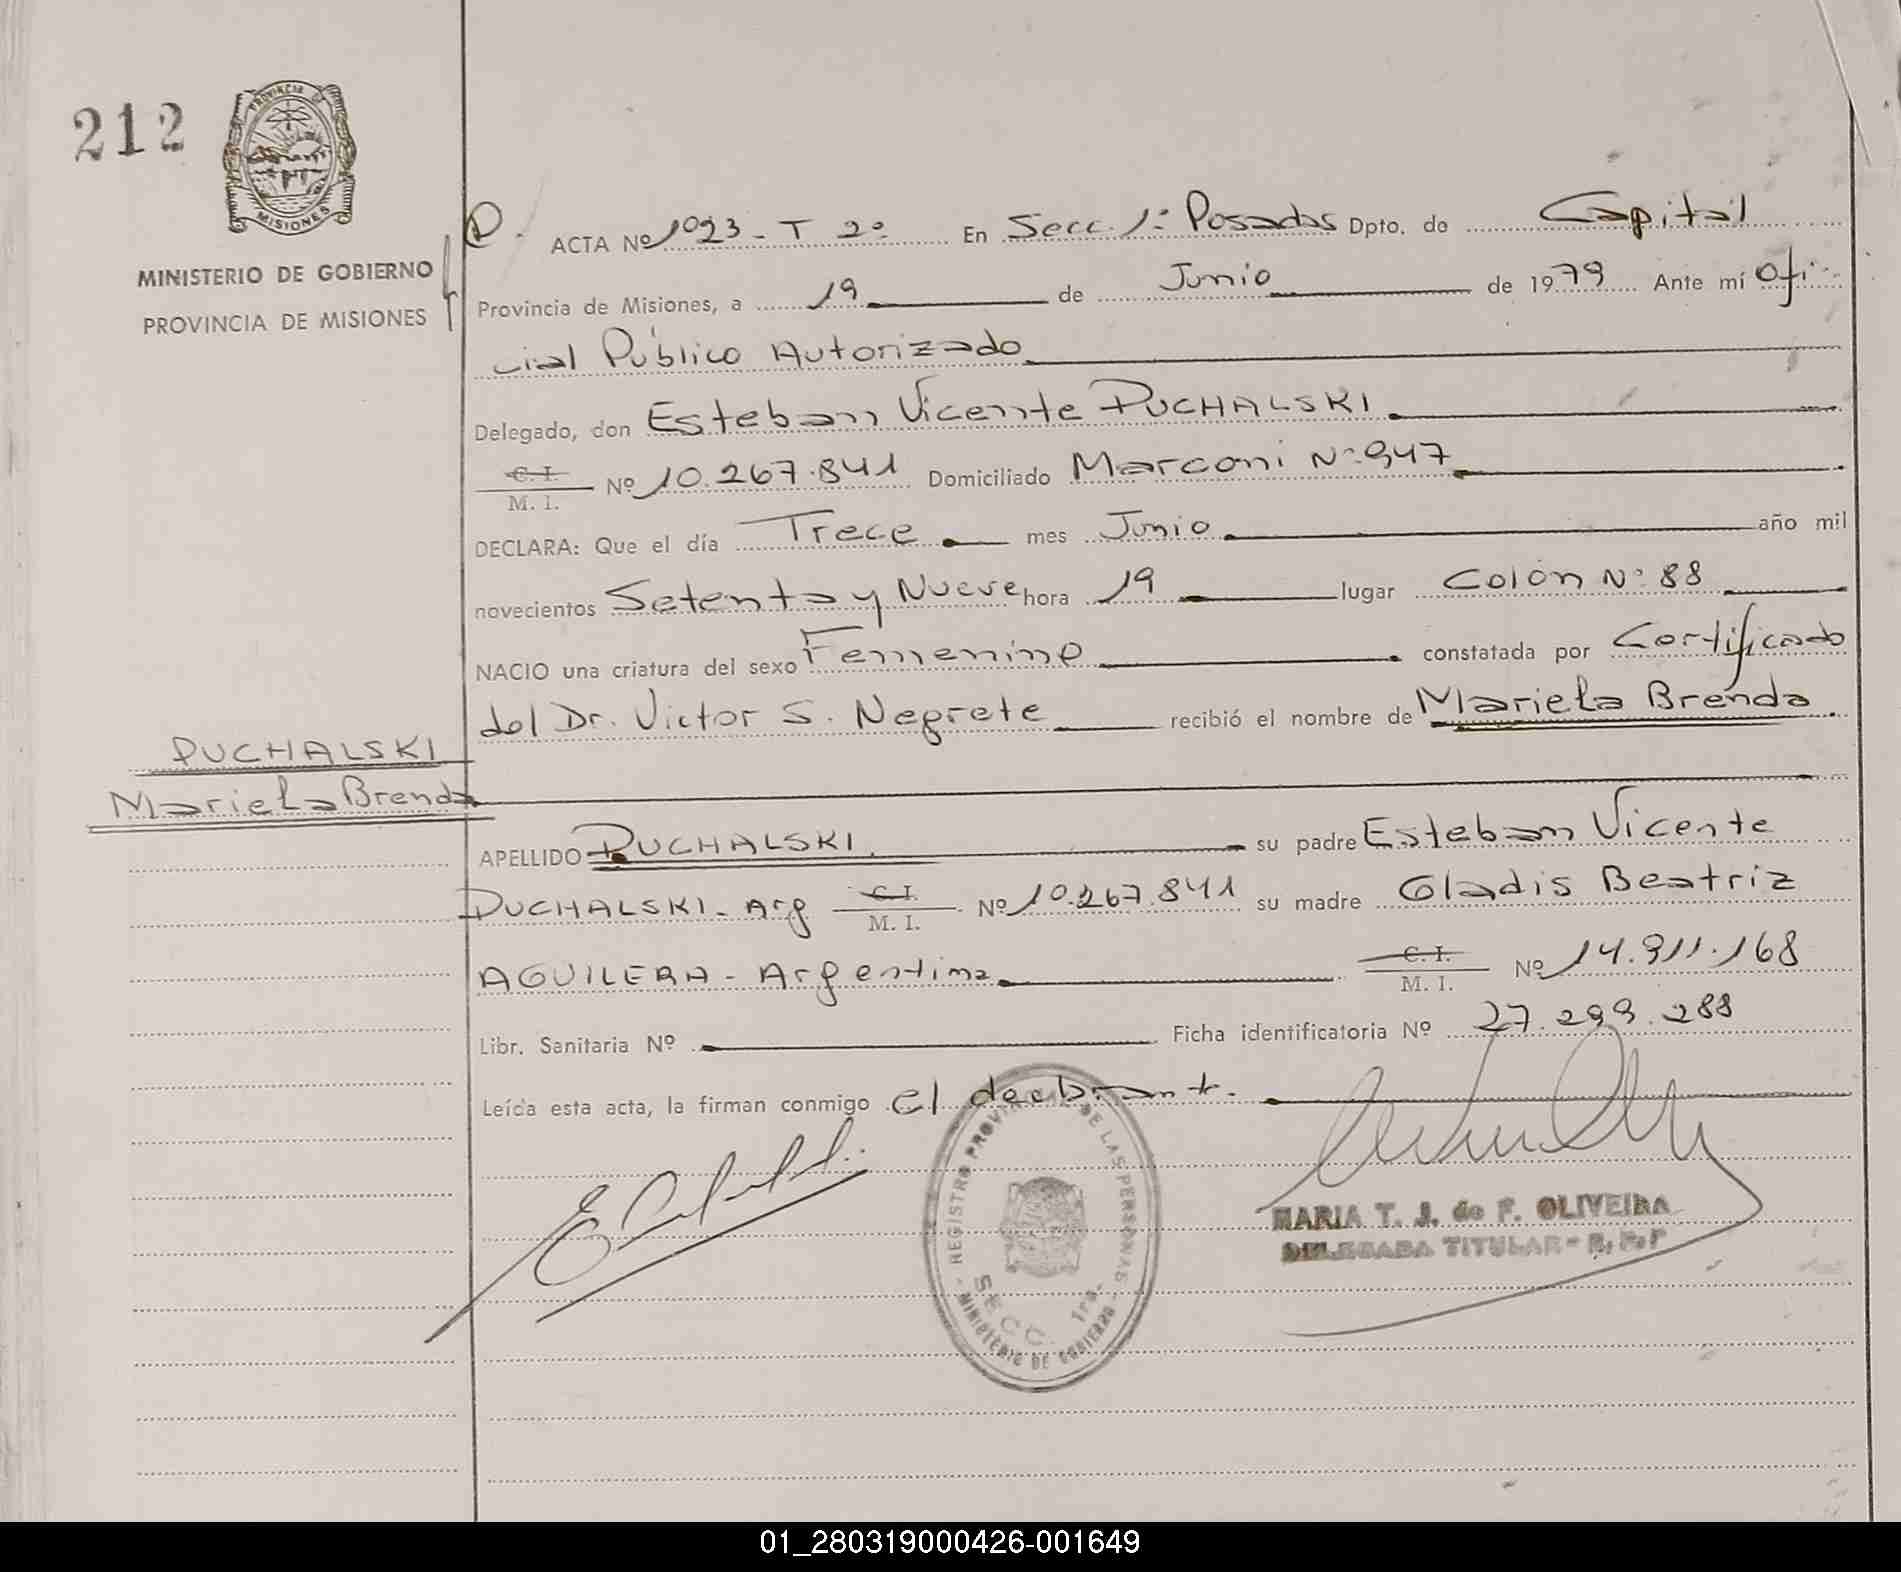 212
PROVINCIA DE
MISIONES
MINISTERIO DE GOBIERNO
PROVINCIA DE MISIONES
ACTA Nº 1023 - T 2º En Secc. 1ª Posadas Dpto. de Capital
Provincia de Misiones, a 19 de Junio de 1979 Ante mí Ofi-
cial Público Autorizado
Delegado, don Esteban Vicente PUCHALSKI
C. I.
M. I. Nº 10.267.841 Domiciliado Marconi Nº 947
DECLARA: Que el día Trece mes Junio año mil
novecientos Setenta y Nueve hora 19 lugar Colón Nº 88
NACIO una criatura del sexo Femenino constatada por Certificado
del Dr. Victor S. Negrete recibió el nombre de Mariela Brenda
PUCHALSKI
Mariela Brenda
APELLIDO PUCHALSKI. su padre Esteban Vicente
PUCHALSKI - Arg C. I. M. I. Nº 10.267.841 su madre Gladis Beatriz
AGUILERA - Argentina C. I. M. I. Nº 14.911.168
Libr. Sanitaria Nº Ficha identificatoria Nº 27.299.288
Leída esta acta, la firman conmigo el declarant.
REGISTRO PROVINCIAL DE LAS PERSONAS
SECC. 1ra.
MINISTERIO DE GOBIERNO
MARIA T. J. de F. OLIVEIRA
DELEGADA TITULAR - R. P. P
01_280319000426-001649